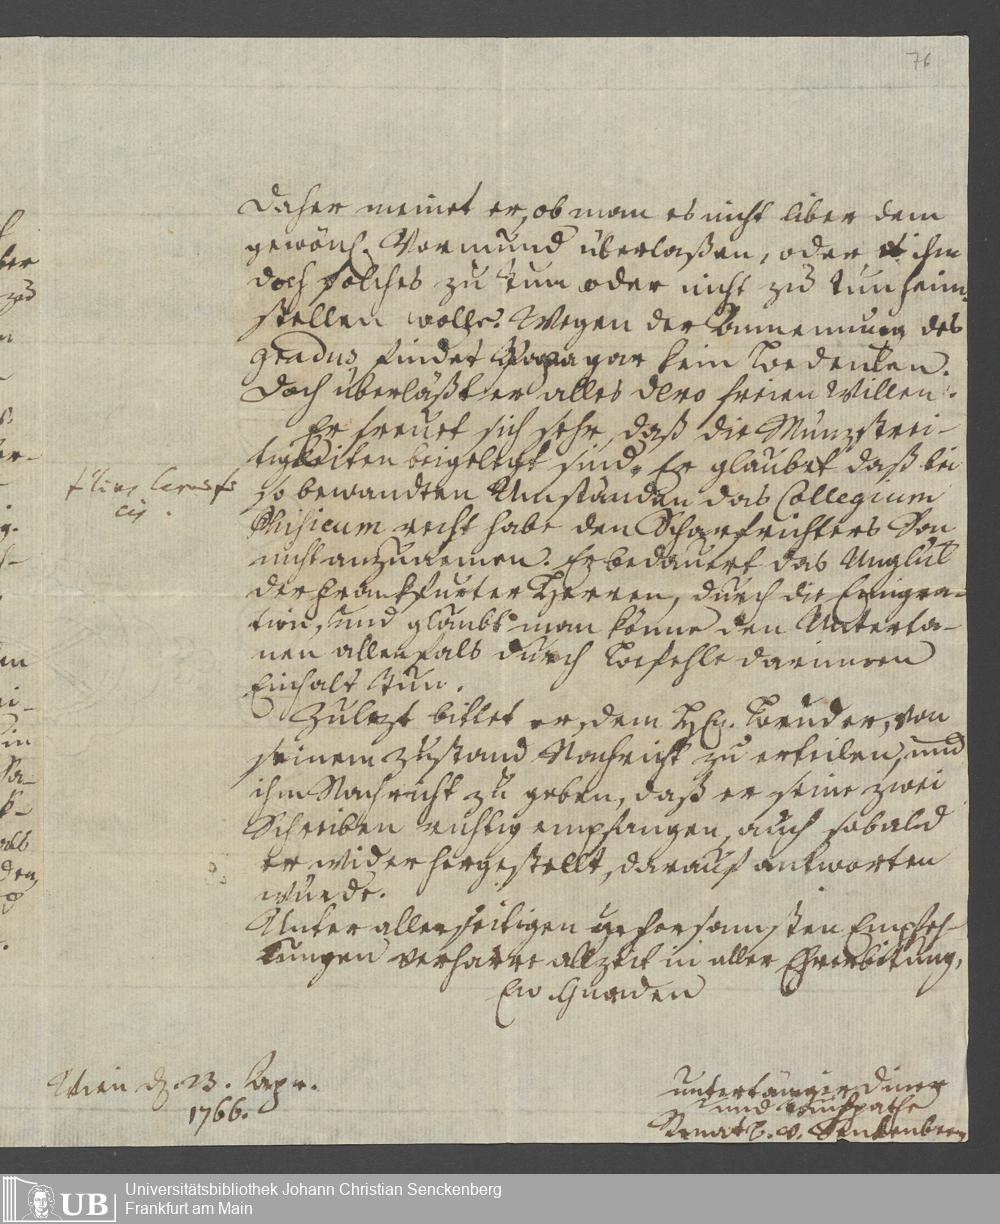 76
Daher meinet er, ob man es nicht liber dem
gewönl. Vormund überlaßen, oder ihm
doch solches zu tun oder nicht zu tun heim
stellen wolle. Wegen der Annemung des
gradus, findet Papa gar kein Bedenken.
Doch überläßt er alles dero freien Willen.
Er freuet sich sehr, daß die Münzstrei-
tigkeiten beigelegt sind. Er glaubet daß bei
so bewandten Umständen das Collegium
Phisicum recht habe den Scharfrichters Son
nicht anzunemen. Er bedauert das Unglük
der Frankfurter Herren, durch die Emigra-
tion, und glaubt man könne den Unterta-
nen allenfals durch Befehle darinnen
Einhalt tun.
Zulezt bittet er, dem H. Bruder, von
seinem Zustand Nachricht zu erteilen, und
ihm Nachricht zu geben, daß er seine zwei
Schreiben richtig empfangen, auch sobald
er widerhergestellt, darauf antworten
würde.
Unter allerseitigen gehorsamsten Empfeh-
lungen verharre allzeit in aller Ehrerbitung,
Ew. Gnaden
Wien d. 23. Apr.
1766.
untertäniger Diner
und
Renat. C. v. Senkenberg
UB
Universitätsbibliothek Johann Christian Senckenberg
Frankfurt am Main